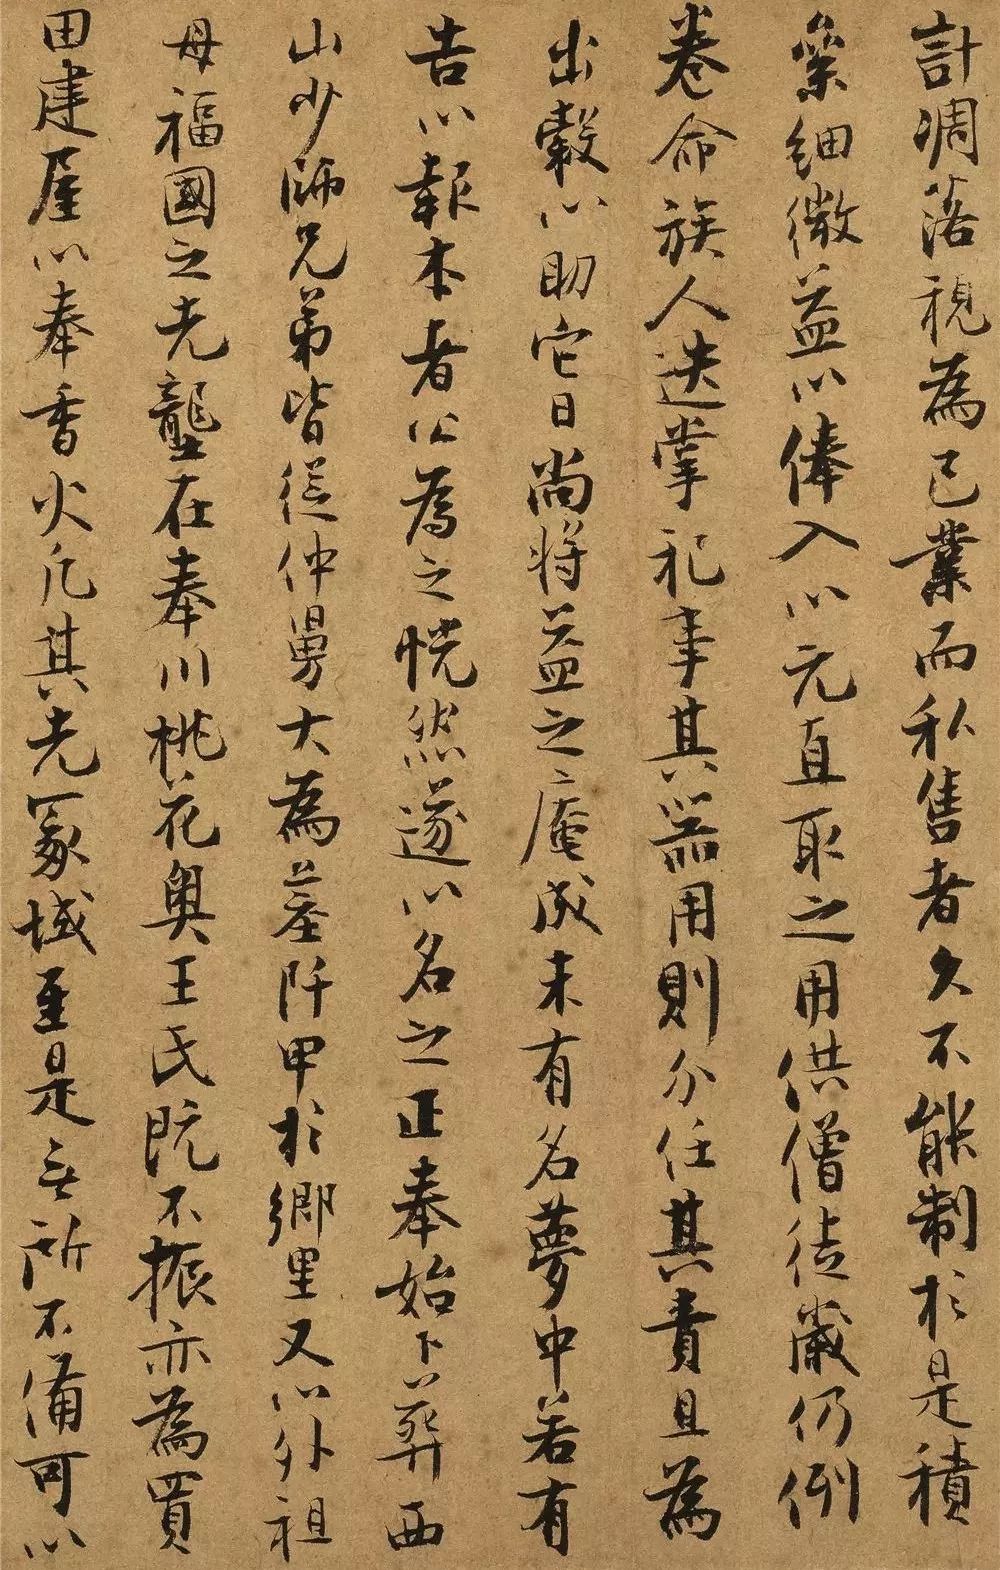 計凋落視為己業而私售者久不能制於是積
絫細微益以俸入以元直取之用供僧徒嵗仍例
卷命族人迭掌祀事其器用則分任其責且為
出穀以助它日尚將益之庵成未有名夢中若有
告以報本者公為之恍然遂以名之正奉始卜葬西
山少師兄弟皆從仲舅大為墓阡甲於鄉里又以外祖
母福國之先壟在奉川桃花奥王氏既不振亦為買
田建屋以奉香火凡其先冢域至是無所不備可以